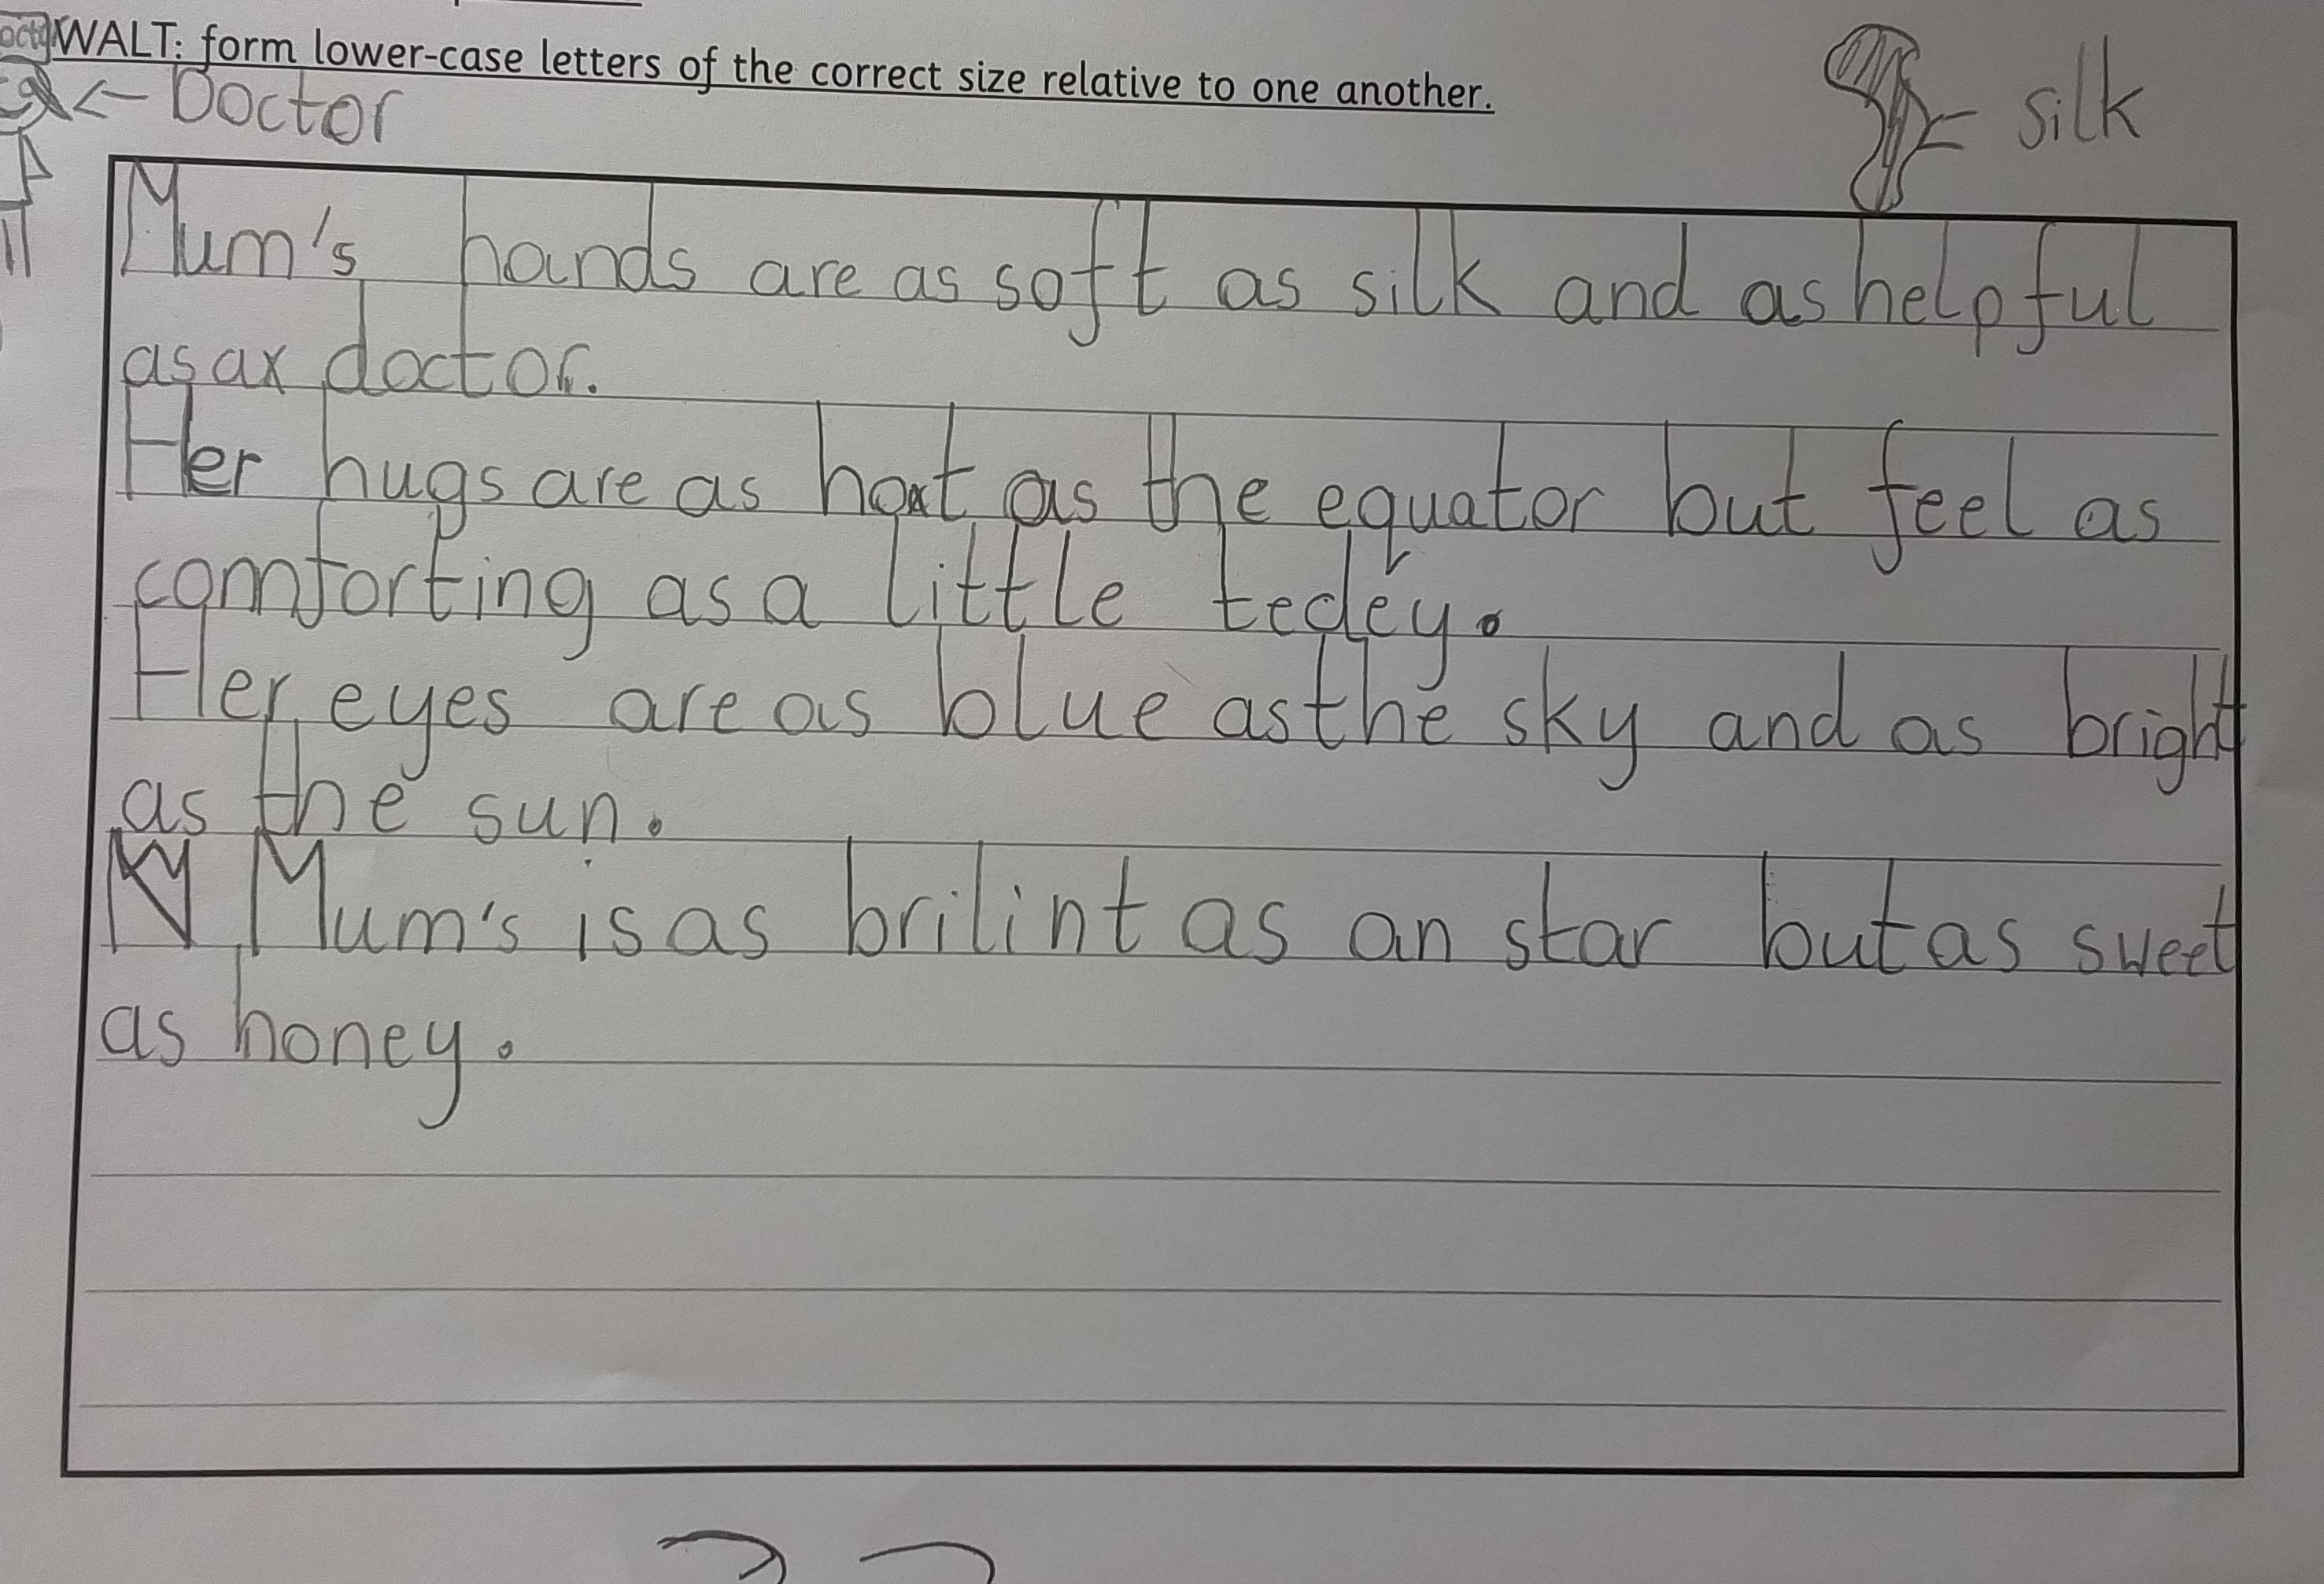 WALT: form lower-case letters of the correct size relative to one another.
Doctor
silk
Mum's hands are as soft as silk and as helpful
as a doctor.
Her hugs are as hot as the equator but feel as
comforting as a little tedey.
Her eyes are as blue as the sky and as bright
as the sun.
Mum's is as brilint as an star but as sweet
as honey.